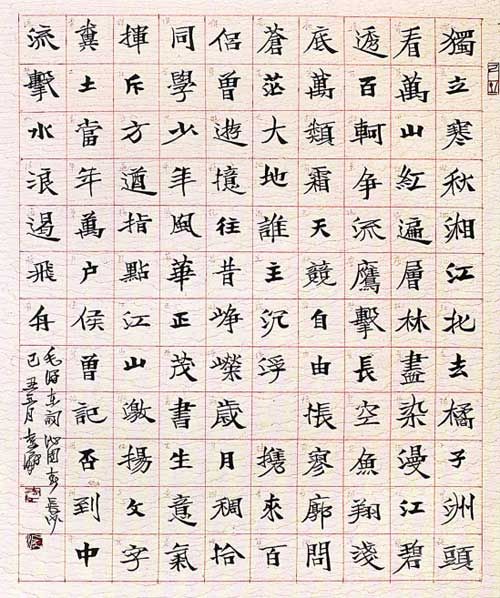 獨立寒秋湘江北去橘子洲頭
看萬山紅遍層林盡染漫江碧
透百軻爭流鷹擊長空魚翔淺
底萬類霜天競自由悵廖廓問
蒼茫大地誰主沉浮攜來百
侶曾遊憶往昔崢嶸歲月稠恰
同學少年風華正茂書生意氣
揮斥方遒指點江山激揚文字
糞土當年萬戶侯曾記否到中
流擊水浪遏飛舟
毛澤東詞沁園春長沙
己丑五月